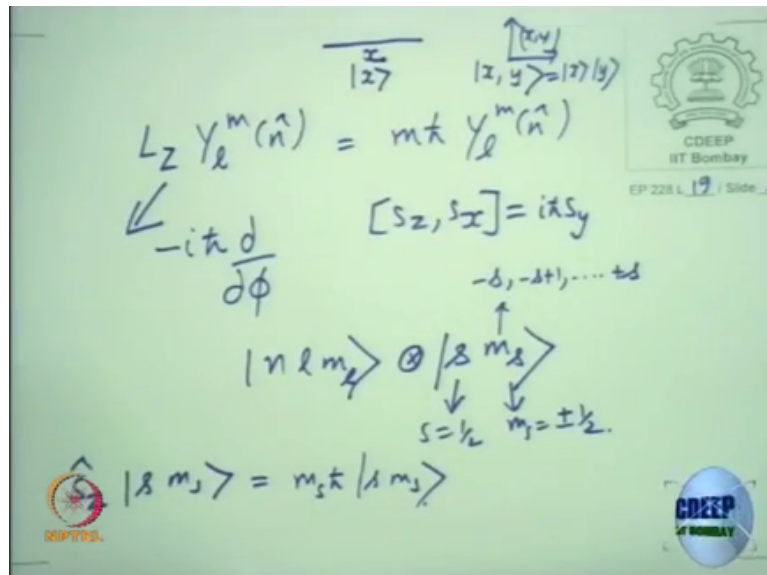 x (x,y)
|x> |x, y> = |x>|y>
CDEEP
IIT Bombay
EP 228 L 19 / Slide
L_Z Y_l^m(n̂) = mħ Y_l^m(n̂)
-iħ d/dϕ [S_z, S_x] = iħS_y
-s, -s+1, .... +s
|n l m_l> ⊗ |s m_s>
s=1/2 m_s = ±1/2.
Ŝ_z |s m_s> = m_sħ |s m_s>
NPTEL
CDEEP
IIT BOMBAY